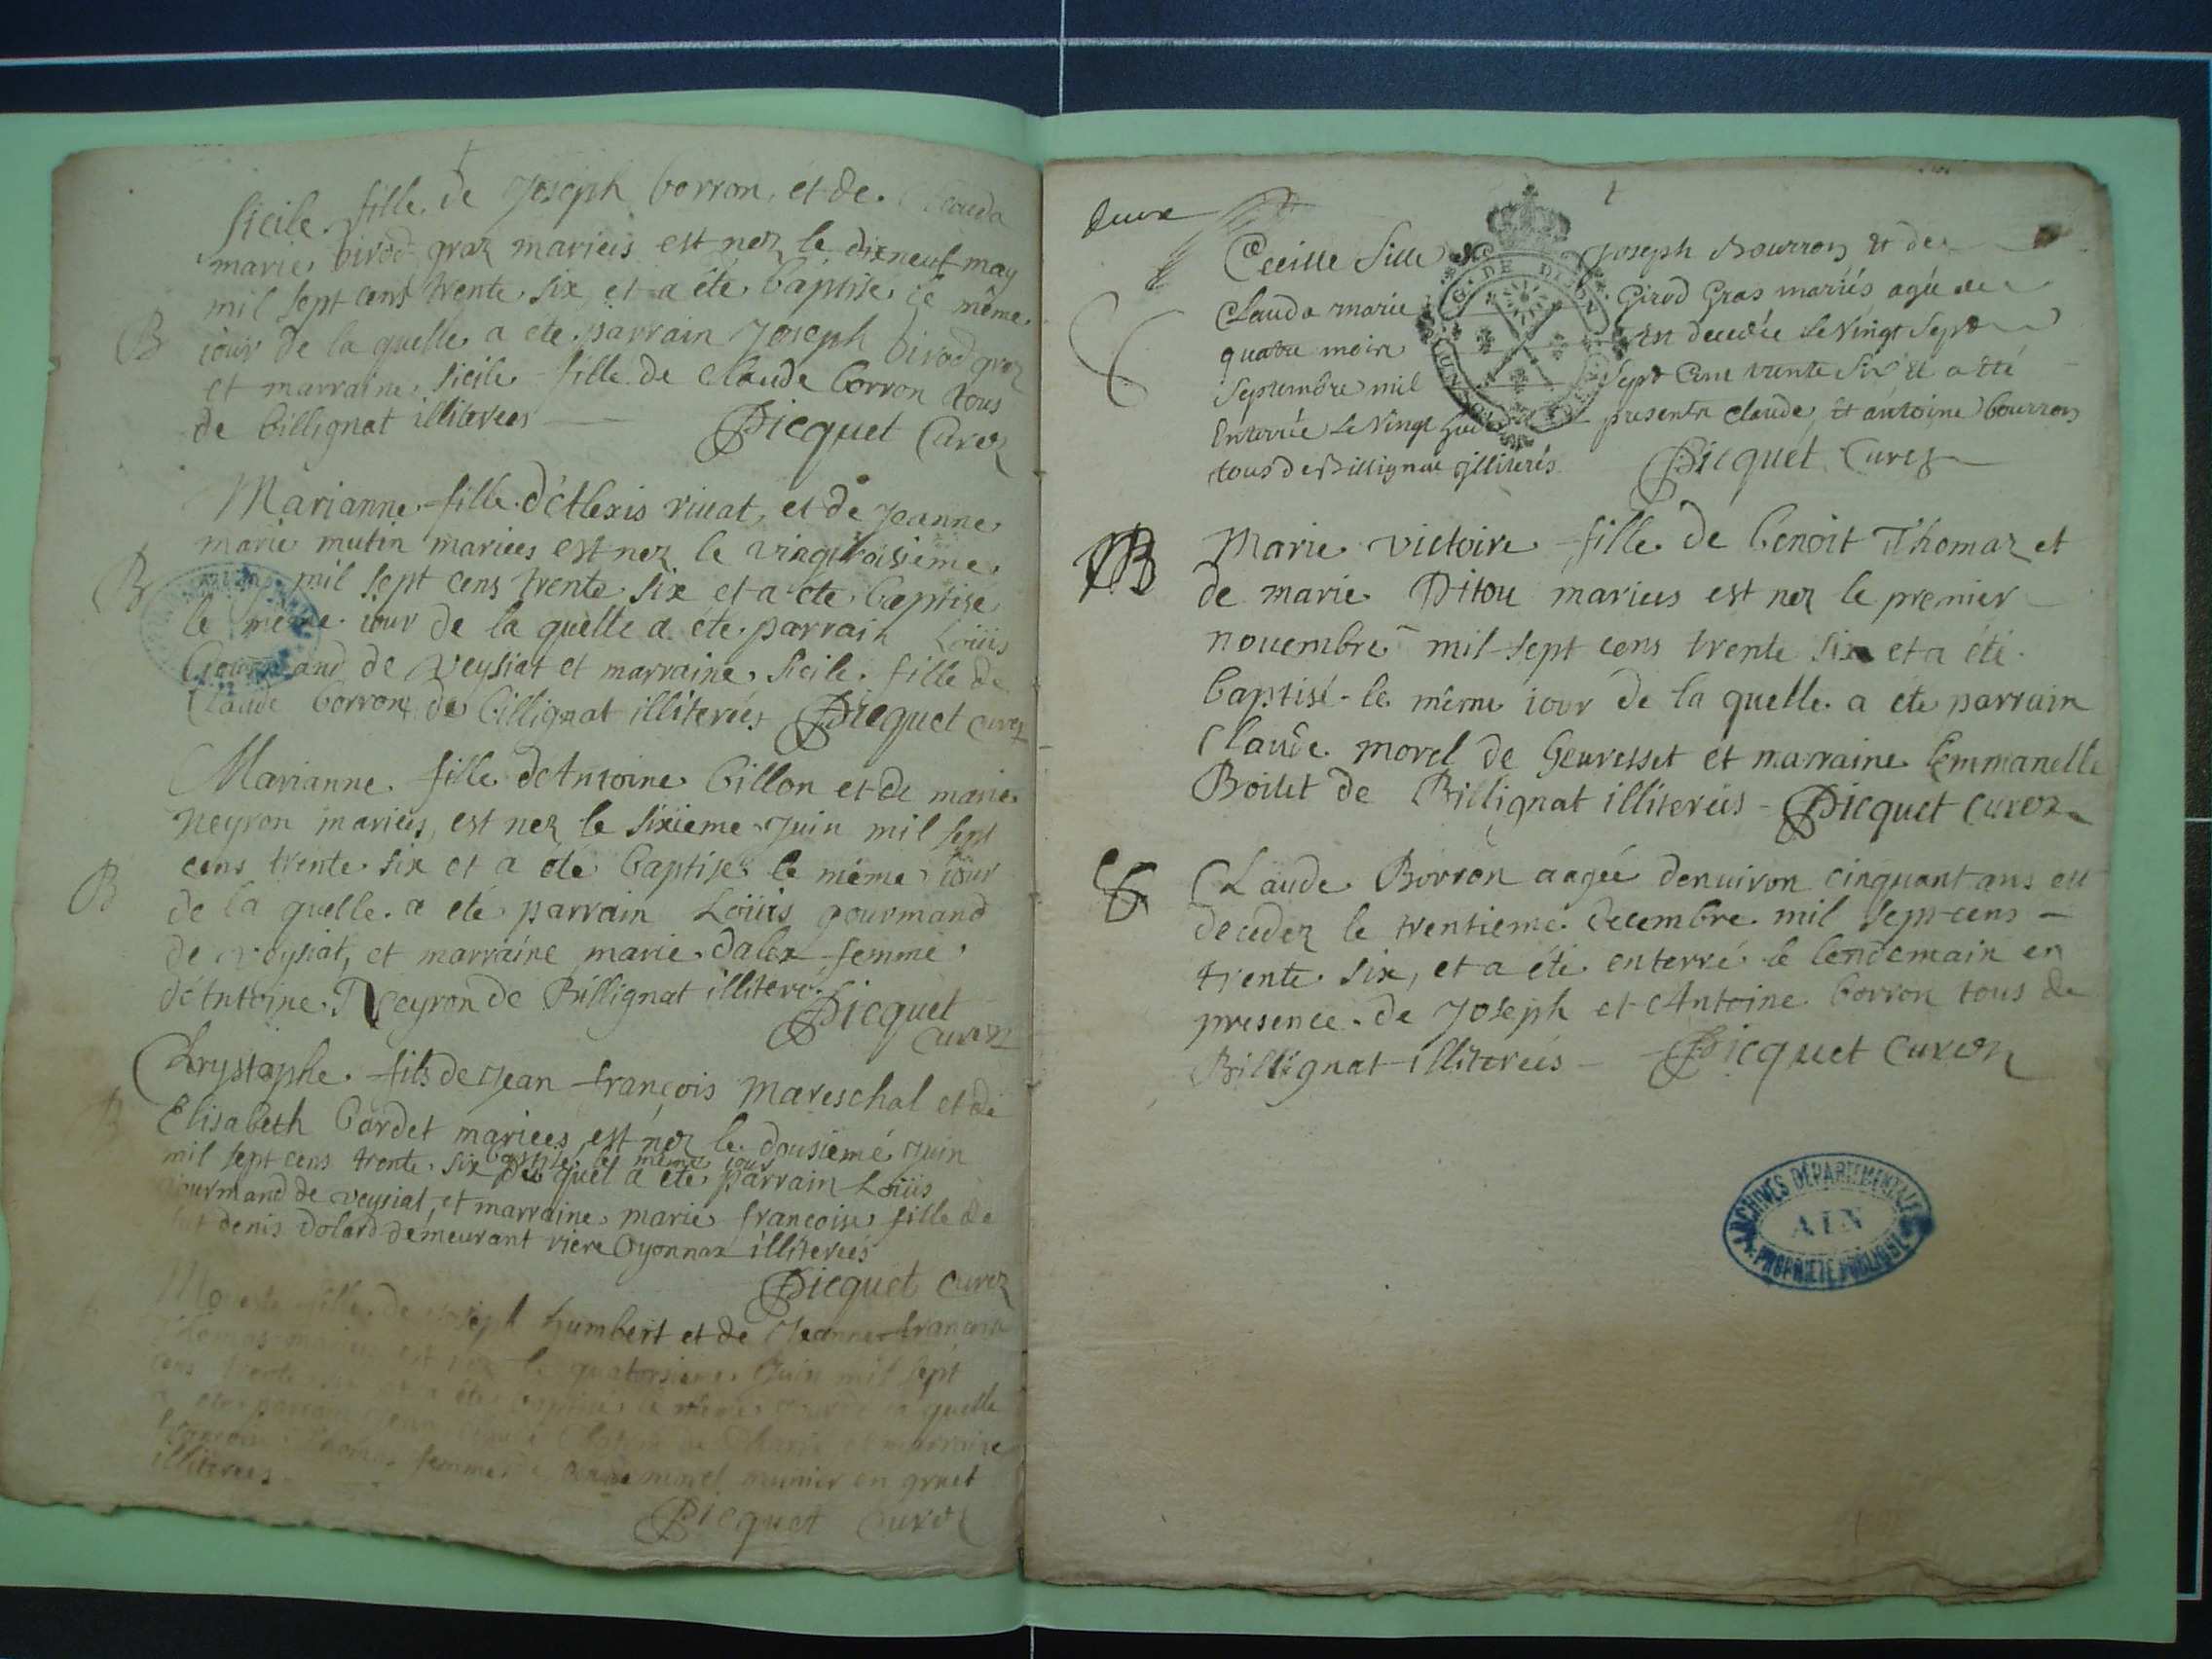 Sicile fille de Joseph borron, et de Clauda
marie birod graz mariées est nez le dixneuf may
mil sept cens trente six, et a été baptise le même
iour de la quelle a eté parrain Joseph birod graz
et marraine Sicile fille de Claude borron tous
de billignat illiterées
Dicquet Curez
B
Marianne fille d'Alexis riuat, et de Jeanne
marie mutin mariées est nez le vingtroisieme
mil sept cens trente six et a été baptise
le même iour de la quelle a été parrain Loüis
Gourmand de Veysiat et marraine Sicile fille de
Claude borron de billignat illiterées Dicquet curez
B
Marianne fille d'Antoine billon et de marie
Neyron mariées, est nez le sixieme Juin mil sept
cens trente six et a eté baptise le même iour
de la quelle a eté parrain Loüis gourmand
de veysiat, et marraine marie dalex femme
d'Antoine Neyron de Billignat illitere
Dicquet
Curez
B
Chrystophe fils de Jean françois Mareschal et de
Elisabeth bordet mariées est nez le dousiemé Juin
baptise le même iour
mil sept cens trente six du quel a eté parrain Loüis
gourmand de veysiat, et marraine marie françoise fille de
denis dolard demeurant riere Oyonnax illiterées
Dicquet Curez
B
fille de Joseph humbert et de Jeanne françoise
Thomas mariées est nez le quatorsieme Juin mil sept
cens trente six et a été baptise le même iour de la quelle
a été parrain et marraine
françoise Thomas femme de Claude morel munier en gruet
illiterées
Dicquet Curez
deux
Cecille fille de Joseph Bourron et de
Clauda marie Girod Gras mariés agée de
quatre mois en decedée le Vingt sept
Septembre mil sept cent trente six et a été
Enterrée le Vingt huit presents claude, et antoine bourron
tous de Billignat illiterés Dicquet Curez
B
Marie victoire fille de benoit Thomaz et
de marie Ditou mariées est nez le premier
nouembre mil sept cens trente six et a été
baptisé le même iour de la quelle a eté parrain
Claude morel de Geuresset et marraine Emmanelle
Boilet de Billignat illiterées - Dicquet Curez
Claude Borron aagée denuiron cinquant ans est
decedez le trentieme decembre mil sept cens -
trente six, et a été enterré le lendemain en
presence de Joseph et Antoine borron tous de
Billignat illiterées - Dicquet Curez
G. DE DIJON
ARCHIVES DÉPARTEMENTALES
AIN
PROPRIÉTÉ PUBLIQUE